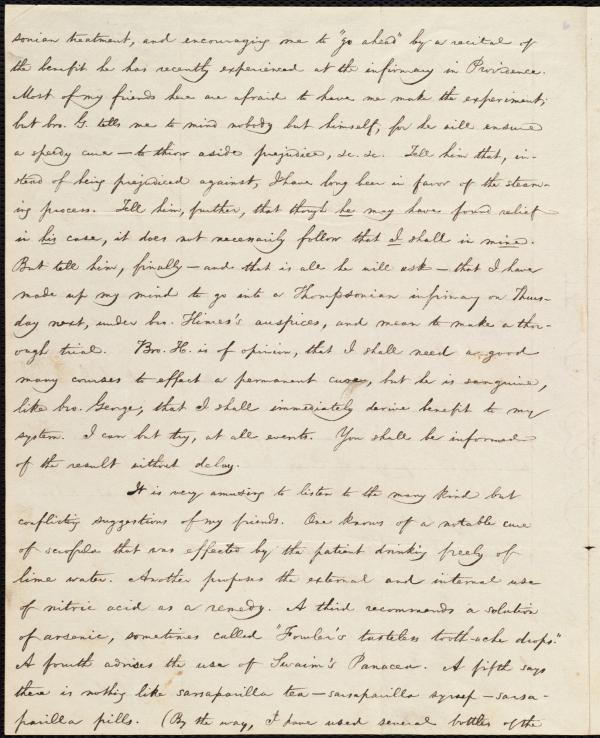 sonian treatment, and encouraging me to "go ahead" by a recital of
the benefit he has recently experienced at the infirmary in Providence.
Most of my friends here are afraid to have me make the experiment;
but bro. G. tells me to mind nobody but himself, for he will ensure
a speedy cure — to throw aside prejudice, &c. &c. Tell him that, in-
stead of being prejudiced against, I have long been in favor of the steam-
ing process. Tell him, further, that though he may have found relief
in his case, it does not necessarily follow that I shall in mine.
But tell him, finally — and that is all he will ask — that I have
made up my mind to go into a Thompsonian infirmary on Thurs-
day next, under bro. Himes's auspices, and mean to make a thor-
ough trial. Bro. H. is of opinion, that I shall need a good
many courses to effect a permanent cure, but he is sanguine,
like bro. George, that I shall immediately derive benefit to my
system. I can but try, at all events. You shall be informed
of the result without delay.
It is very amusing to listen to the many kind but
conflicting suggestions of my friends. One knows of a notable cure
of scrofula that was effected by the patient drinking freely of
lime water. Another proposes the external and internal use
of nitric acid as a remedy. A third recommends a solution
of arsenic, sometimes called "Fowler's tasteless tooth-ache drops."
A fourth advises the use of Swaim's Panacea. A fifth says
there is nothing like sarsaparilla tea — sarsaparilla syrup — sarsa-
parilla pills. (By the way, I have used several bottles of the